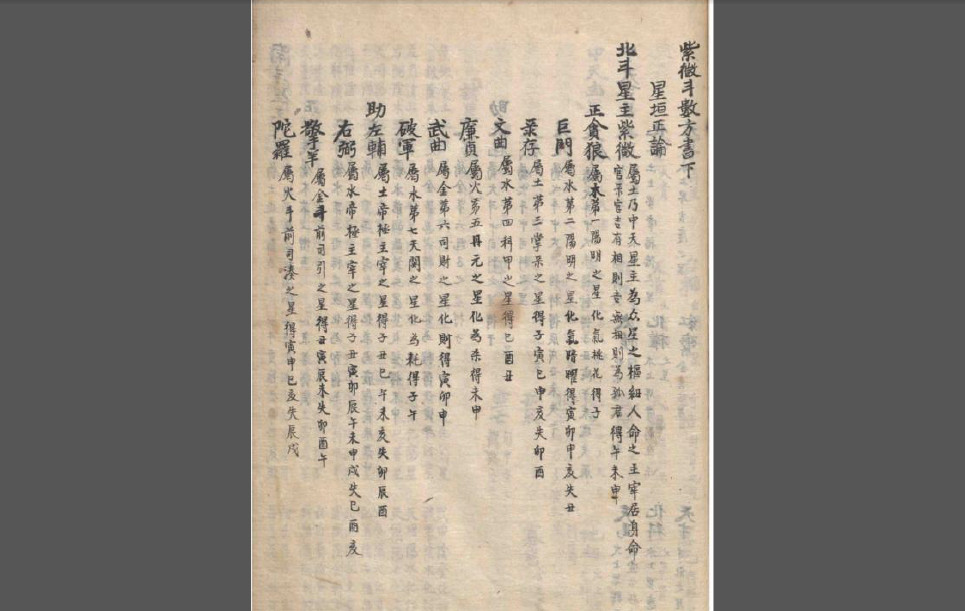 紫微斗數方書下
星垣正論
北斗星主紫微 屬土乃中天星主為众星之樞紐人命之主宰居身命
官祿宮吉有相則吉無相則為孤君得午未申
正貪狼 屬水第一陽明之星化氣桃花得子
巨門 屬水第二陽明之星化氣暗曜得寅卯申亥失丑
祿存 屬土第三掌祿之星得子寅巳申亥失卯酉
助文曲 屬水第四科甲之星得巳酉丑
廉貞 屬火第五丹元之星化為杀得未申
武曲 屬金第六司財之星化則得寅卯申
破軍 屬水第七天関之星化為耗得子午
助左輔 屬土帝極主宰之星得子丑巳午未亥失卯辰酉
右弼 屬水帝極主宰之星得子丑寅卯辰午未申戌失巳酉亥
擎羊 屬金斗前司引之星得丑寅辰未失卯酉午
陀羅 屬火斗前司湊之星得寅申巳亥失辰戌